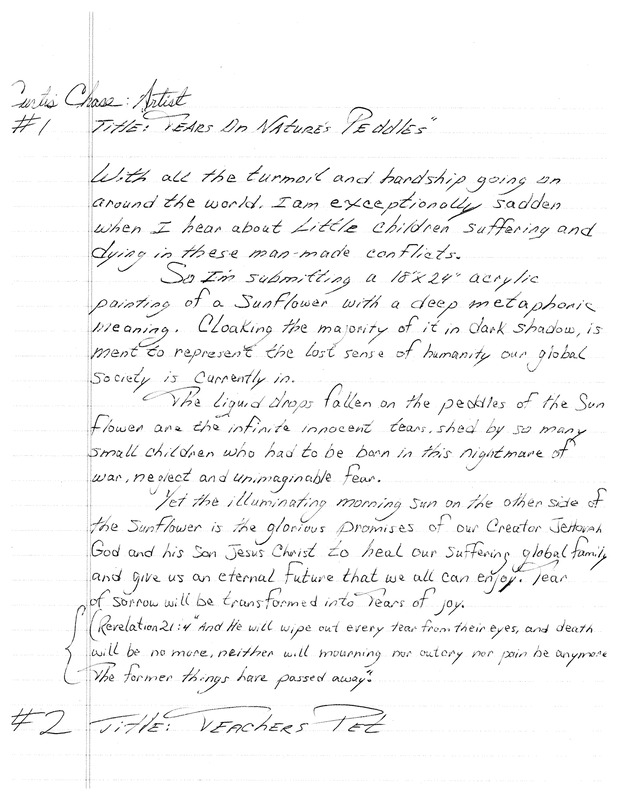 Curtis Chase: Artist
#1 Title: Tears On Nature's Peddles"
With all the turmoil and hardship going on
around the world. I am exceptionally sadden
when I hear about Little children suffering and
dying in these man-made conflicts.
So I'm submitting a 18"x24" acrylic
painting of a Sunflower with a deep metaphoric
meaning. Cloaking the majority of it in dark shadow, is
ment to represent the lost sense of humanity our global
society is currently in.
The liquid drops fallen on the peddles of the Sun
flower are the infinite innocent tears, shed by so many
small children who had to be born in this nightmare of
war, neglect and unimaginable fear.
Yet the illuminating morning sun on the other side of
the Sunflower is the glorious promises of our Creator Jehovah
God and his Son Jesus Christ to heal our suffering global family
and give us an eternal future that we all can enjoy. Tear
of sorrow will be transformed into Tears of joy.
(Revelation 21:4 "And He will wipe out every tear from their eyes, and death
will be no more, neither will mourning nor outcry nor pain be anymore
The former things have passed away".
#2 Title: Teachers Pet